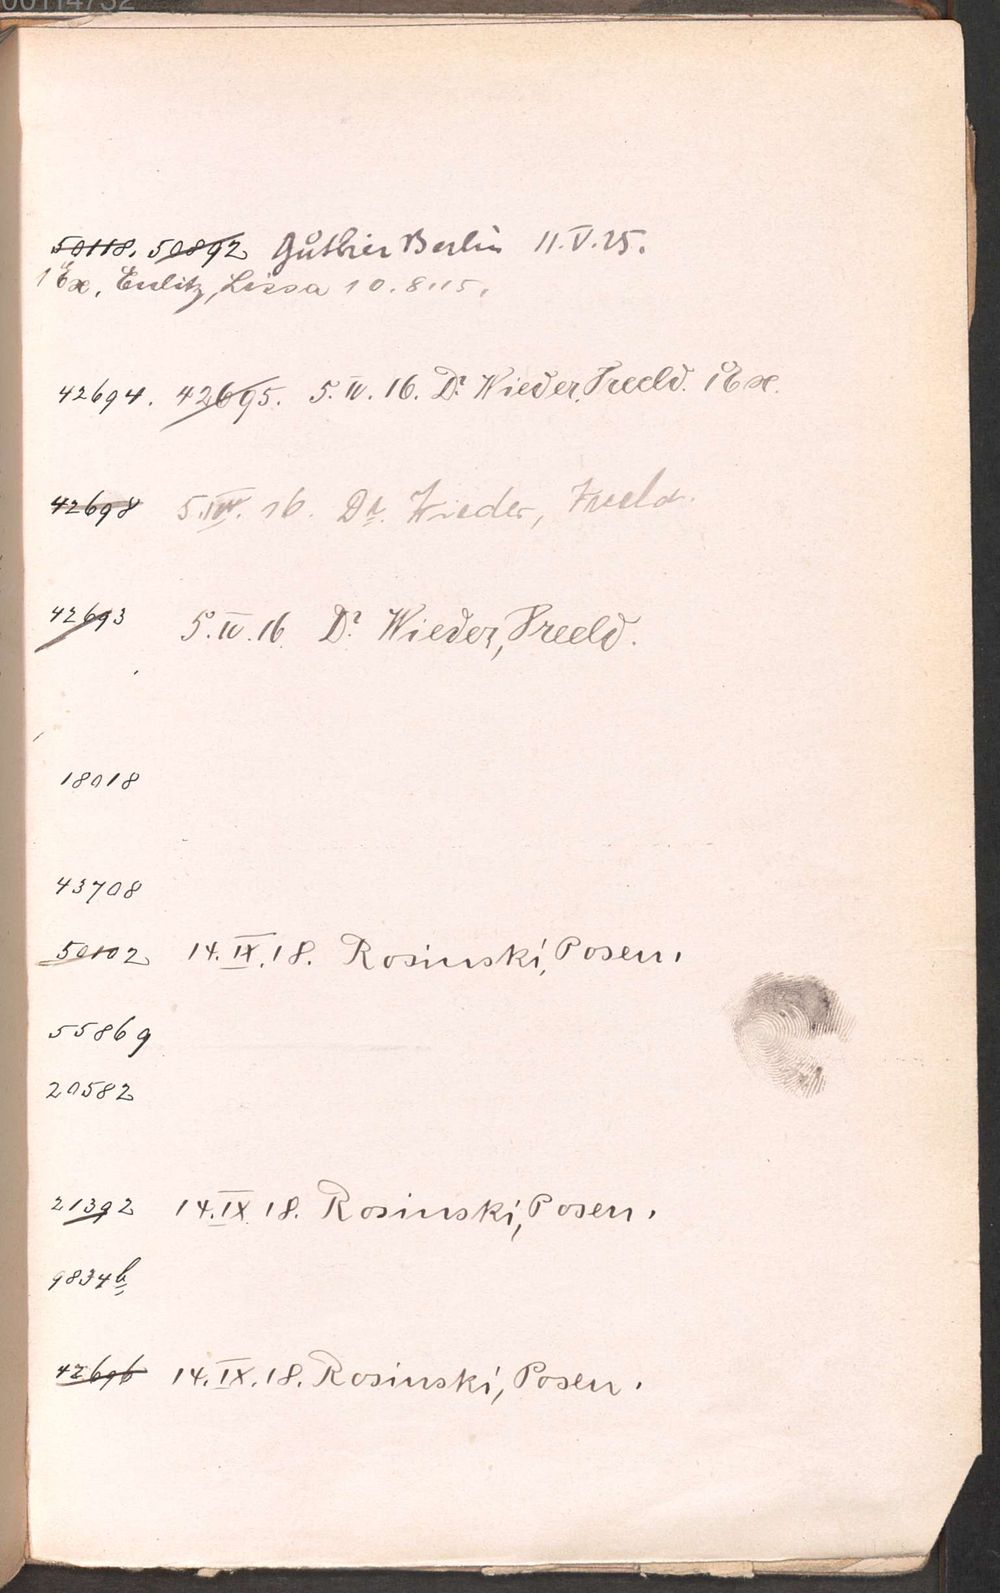 00114732
50118. 50892 Güthier Berlin 11.V.25.
1 Ex, Eulitz, Lissa 10.8.15.
42694. 42695. 5.IV.16. Dr Wieder, 1 Ex.
42698 5.IV.16. Dr. Wieder,
42693 5.IV.16 Dr Wieder,
18018
43708
50102 14.IX.18. Rosinski, Posen.
55869
20582
21392 14.IX.18. Rosinski, Posen.
9834b
42696 14.IX.18. Rosinski, Posen.